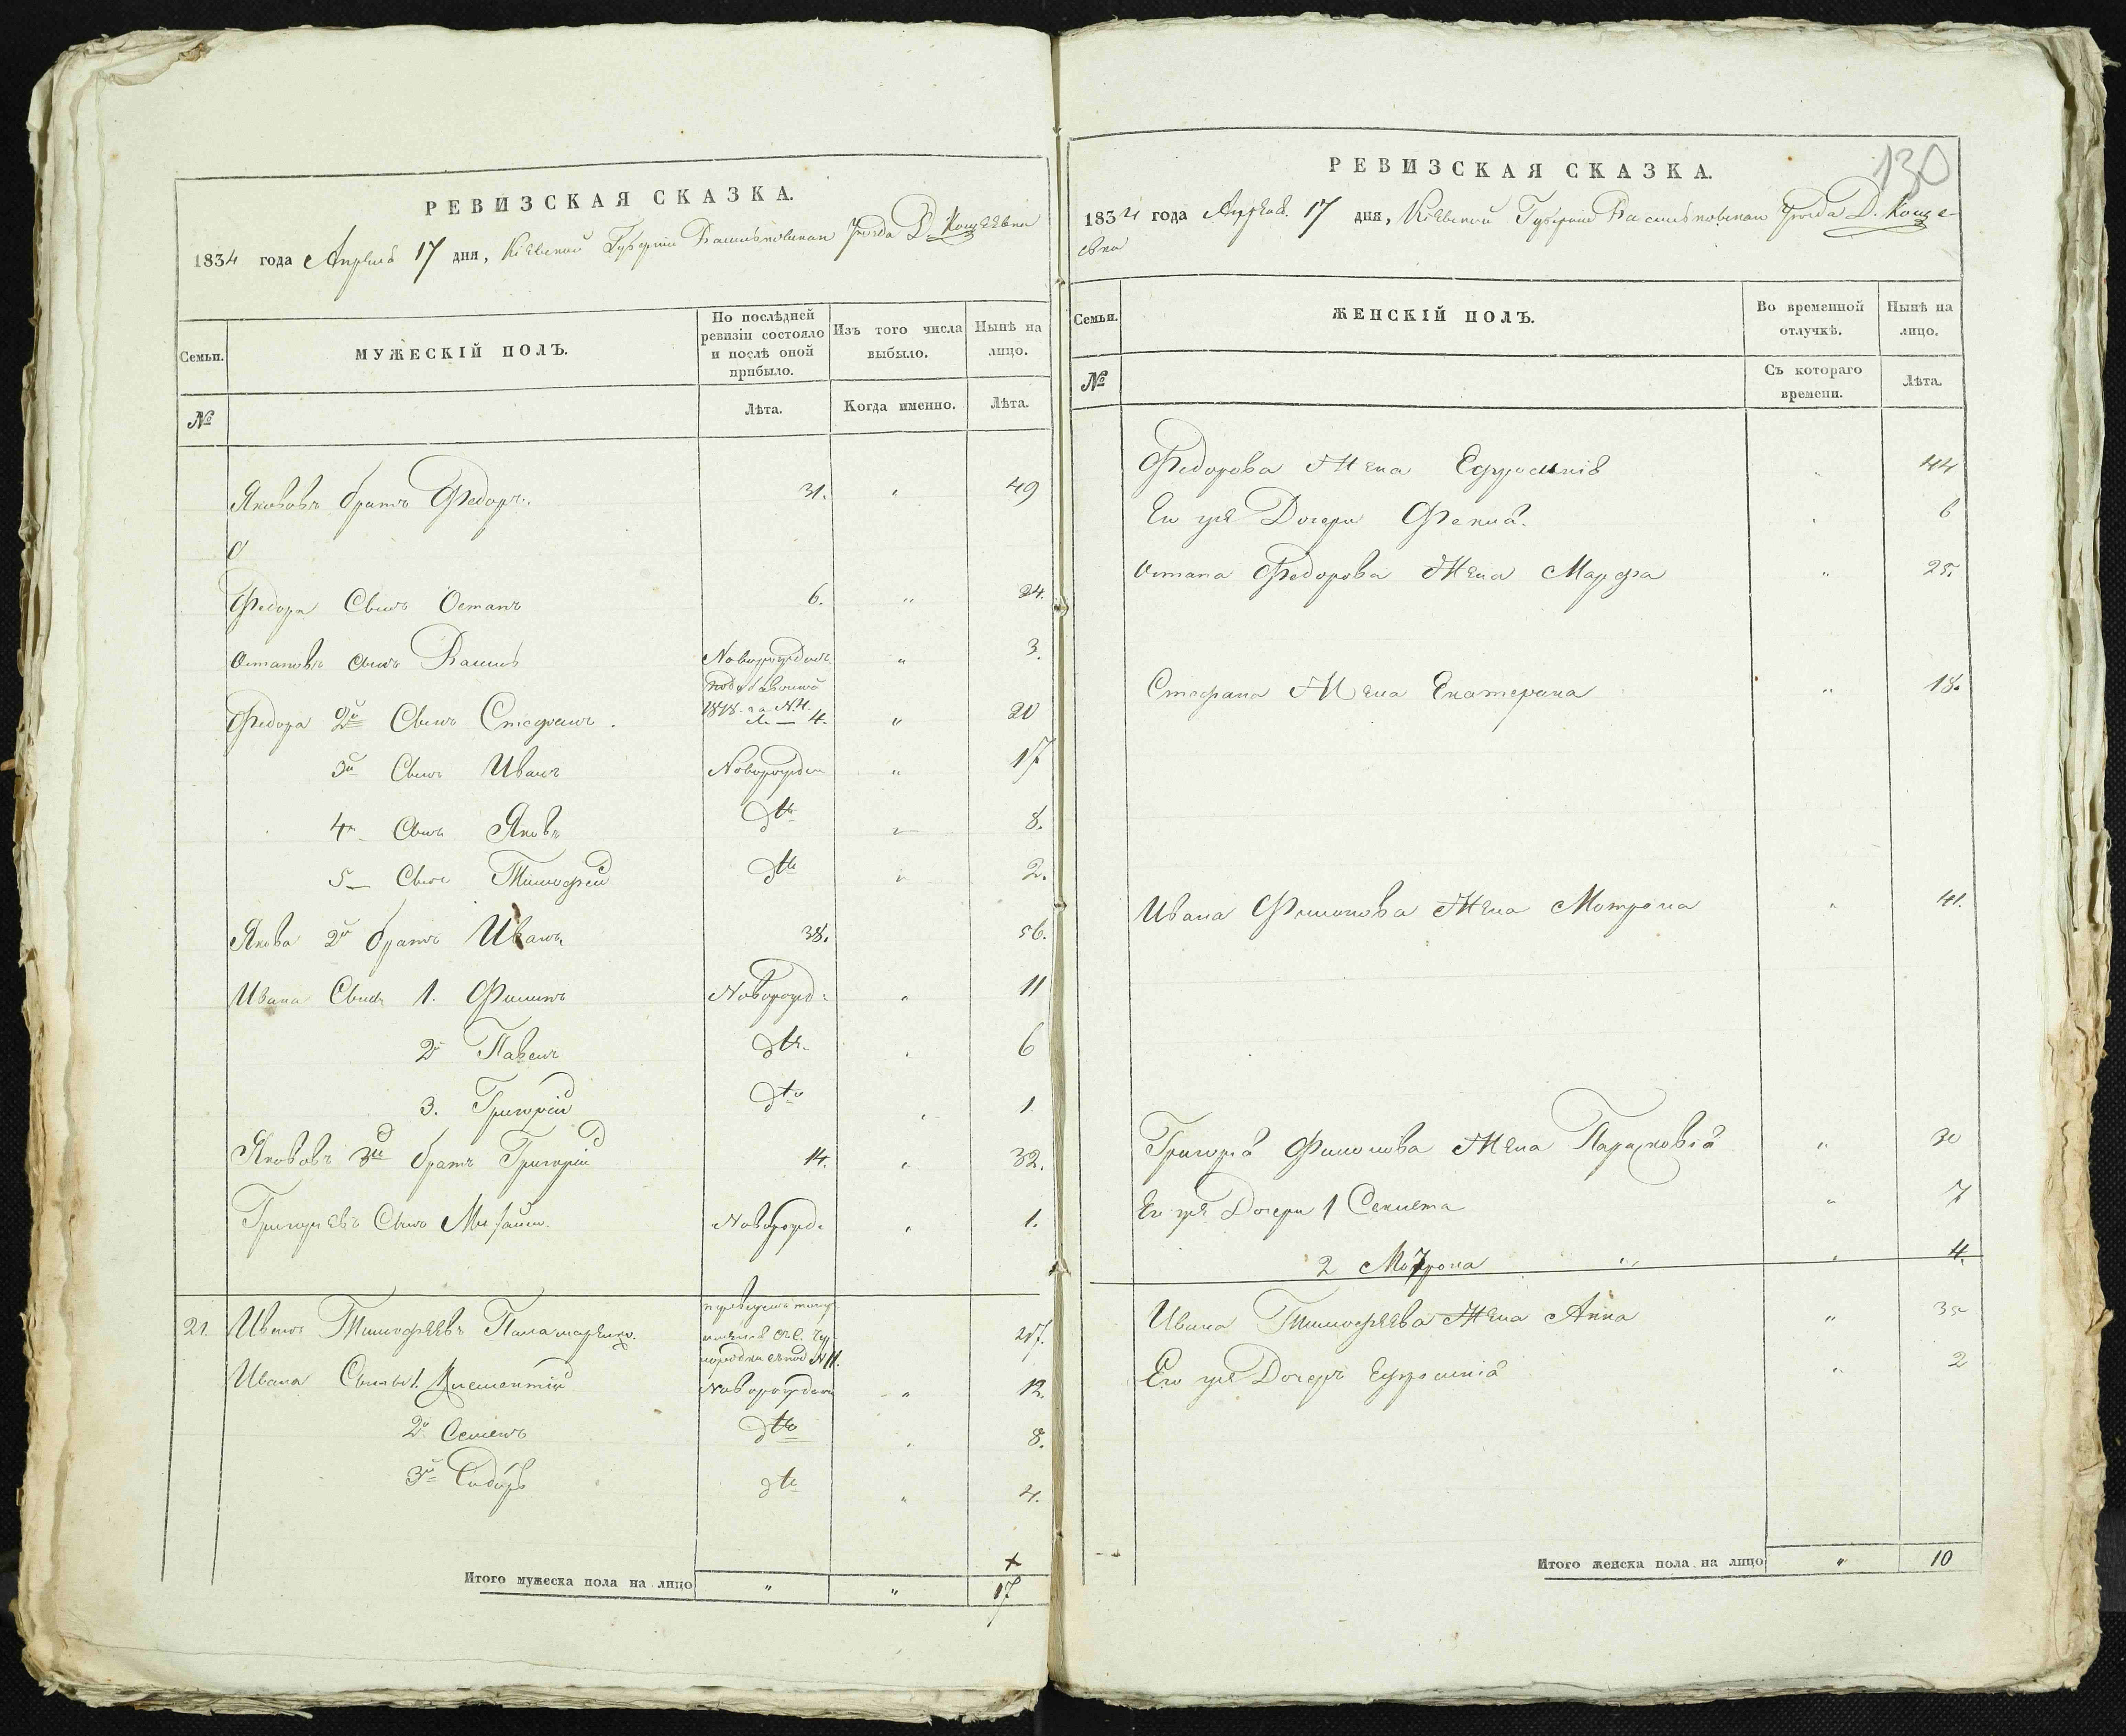 РЕВИЗСКАЯ СКАЗКА.
1834 года Апреля 17 дня, Кіевской Губерніи Васильковскаго Уезда Д. Кощеевка
Семьи.
МУЖЕСКІЙ ПОЛЪ.
По послѣдней ревизіи состояло и послѣ оной прибыло.
Изъ того числа выбыло.
Нынѣ на лицо.
№
Лѣта.
Когда именно.
Лѣта.
Яковов братъ Федоръ. 31. " 49
Федора Сынъ Остапъ 6. " 24.
Остаповъ сынъ Василь Новорожден " 3.
Федора 2й Сынъ Стефанъ. 1818 № 4. " 20
3й Сынъ Иванъ Новорожден " 17
4й Сынъ Яковъ dto " 8.
5 Сынъ Тимофей dto " 2.
Якова 2й братъ Иванъ 38. 56.
Ивана Сынъ 1. Филипъ Новорожд: " 11
2й Павелъ dto. " 6
3. Григорій dto " 1
Якововъ 3й братъ Григорій 14. " 32.
Григорьевъ Сынъ Михайло Новорожд: " 1.
21 Иванъ Тимофеевъ Паламаренко № 11. 27.
Ивана Сыны 1. Климентій Новорожден " 12.
2й Семенъ dto " 8.
3й Сидоръ dto " 4.
Итого мужеска пола на лицо " " 17
130
РЕВИЗСКАЯ СКАЗКА.
1834 года Апреля 17 дня, Кіевской Губерніи Васильковскаго Уезда Д. Коще-
евка
Семьи.
ЖЕНСКІЙ ПОЛЪ.
Во временной отлучкѣ.
Нынѣ на лицо.
№
Съ котораго времени.
Лѣта.
Федорова Жена Ефросинія " 44
Его же Дочери Фекла. " 6
Остапа Федорова Жена Марфа " 25.
Стефана Жена Екатерина " 18.
Ивана Филипова Жена Мотрона " 41.
Григорія Филипова Жена Парасковія " 30
Его же Дочери 1 Секлета " 7
2 Мотрона " " 4.
Ивана Тимофеева Жена Анна " 35
Его же Дочерь Ефросинія " 2
Итого женска пола на лицо " 10